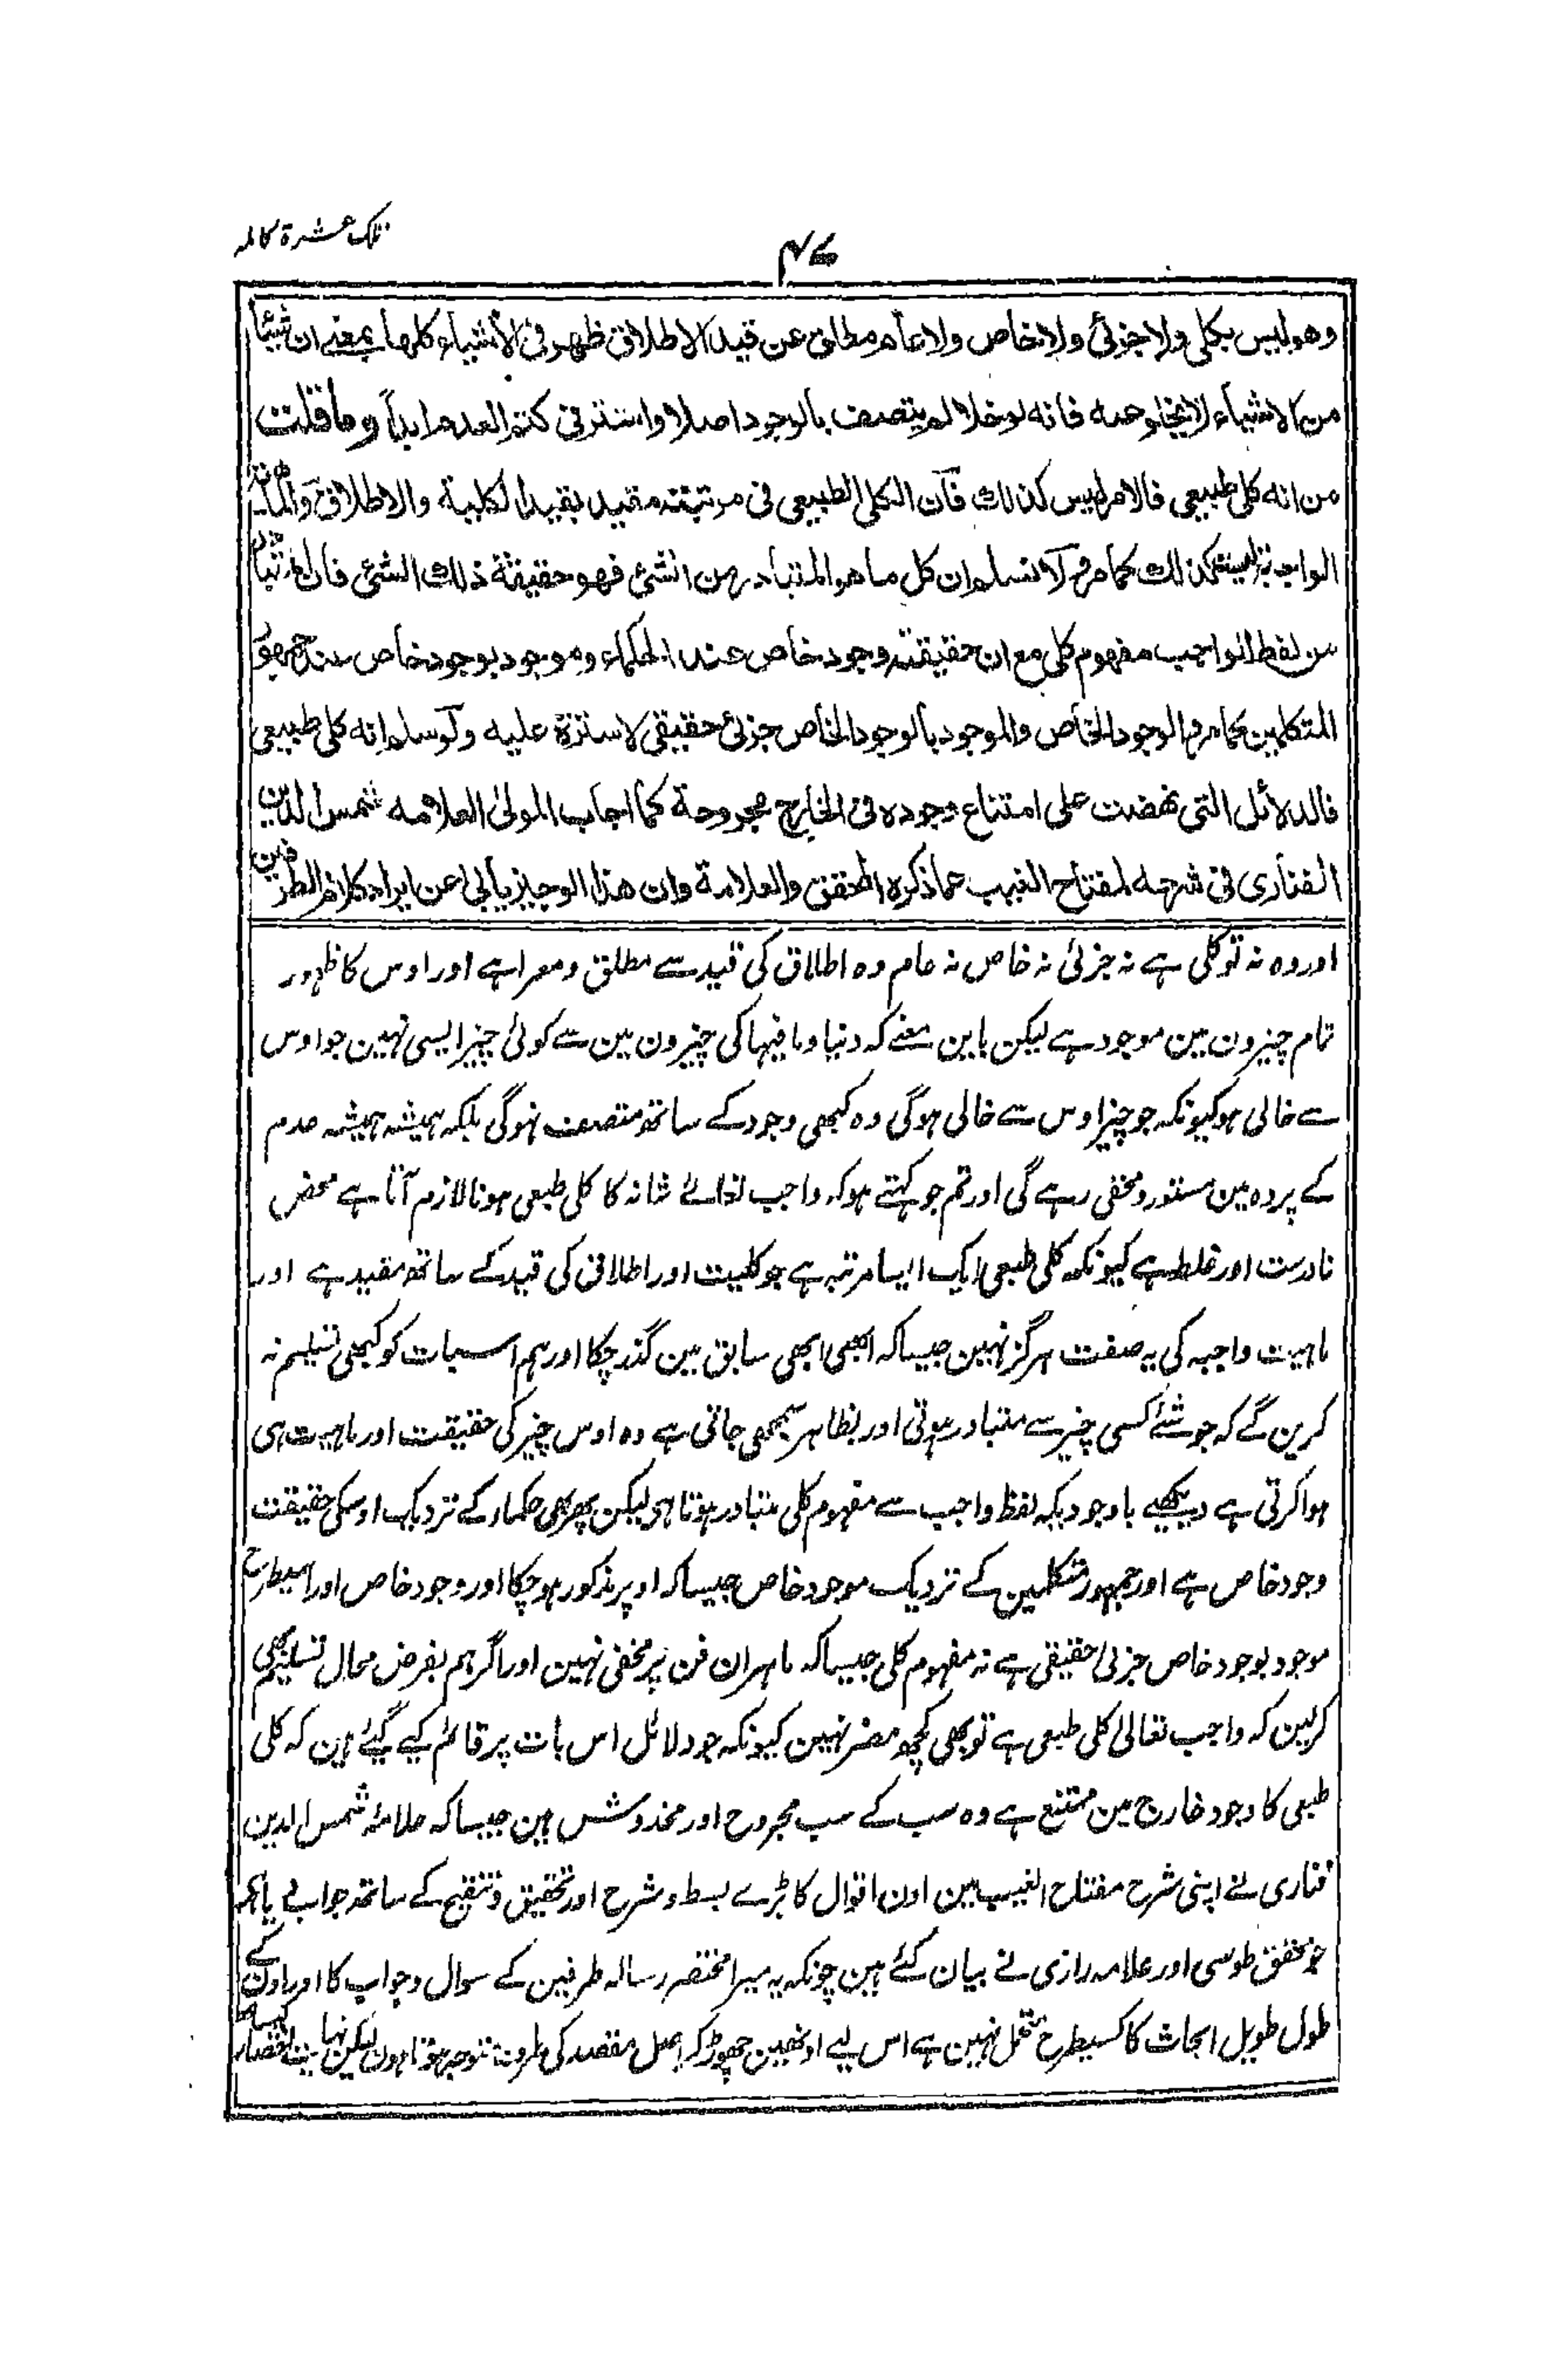 تلک عشرۃ کاملہ
۴۷
وهو ليس بكلي ولا جزئي ولا خاص ولا عام مطلق عن قيد الاطلاق ظهر في الاشياء كلها بمعنى ان شيئا
من الاشياء لا يخلو عنه فانه لو خلا لم يتصف بالوجود اصلا واستتر في كتم العدم ابداً وما قلت
من انه كلي طبيعي فالامر ليس كذلك فان الكلي الطبيعي في مرتبته مقيد بقيد الكلية والاطلاق والماهية
الواجبة ليست كذلك كما مر ولا نسلم ان كل ما هو المتبادر من الشئ فهو حقيقة ذلك الشئ فان المتبادر
من لفظ الواجب مفهوم كلي مع ان حقيقته وجود خاص عند الحكماء وموجود بوجود خاص عند جمهور
المتكلمين كما مر والوجود الخاص والموجود بالوجود الخاص جزئي حقيقي لا سترة عليه ولو سلم انه كلي طبيعي
فالدلائل التي نهضت على امتناع وجوده في الخارج مجروحة كما اجاب المولى العلامه شمس الدين
الفناري في شرحه لمفتاح الغيب عما ذكره المحقق والعلامة وان هذا الوجيز يأبى عن ايراد كلام الطرفين
اور وہ نہ تو کلی ہے نہ جزئی نہ خاص نہ عام وہ اطلاق کی قید سے مطلق و معرا ہے اور اوس کا ظہور
تمام چیزون مین موجود ہے لیکن باین معنے کہ دنیا و ما فیہا کی چیزون مین سے کوئی چیز ایسی نہین جو اوس
سے خالی ہو کیونکہ جو چیز اوس سے خالی ہوگی وہ کبھی وجود کے ساتھ متصف نہوگی بلکہ ہمیشہ ہمیشہ عدم
کے پردہ مین مستور و مخفی رہے گی اور تم جو کہتے ہو کہ واجب تعالے شانہ کا کلی طبعی ہونا لازم آتا ہے محض
نادرست اور غلط ہے کیونکہ کلی طبعی ایک ایسا مرتبہ ہے جو کلیت اور اطلاق کی قید کے ساتھ مقید ہے اور
ماہیت واجبہ کی یہ صفت ہرگز نہین جیسا کہ ابھی ابھی سابق مین گذر چکا اور ہم اس بات کو کبھی تسلیم نہ
کرین گے کہ جو شئے کسی چیز سے متبادر ہوتی اور بظاہر سمجھی جاتی ہے وہ اوس چیز کی حقیقت اور ماہیت ہی
ہوا کرتی ہے دیکھیے باوجودیکہ لفظ واجب سے مفہوم کلی متبادر ہوتا ہی لیکن پھر بھی حکماء کے نزدیک اوسکی حقیقت
وجود خاص ہے اور جمہور متکلمین کے نزدیک موجود خاص جیسا کہ اوپر مذکور ہو چکا اور وجود خاص اور اسیطرح
موجود بوجود خاص جزئی حقیقی ہے نہ مفہوم کلی جیسا کہ ماہران فن پر مخفی نہین اور اگر ہم بفرض محال تسلیم بھی
کرلین کہ واجب تعالی کلی طبعی ہے تو بھی کچھ مضر نہین کیونکہ جو دلائل اس بات پر قائم کیے گئے ہین کہ کلی
طبعی کا وجود خارج مین ممتنع ہے وہ سب کے سب مجروح اور مخدوش ہین جیسا کہ علامۂ شمس الدین
فناری نے اپنی شرح مفتاح الغیب مین اون اقوال کا بڑے بسط و شرح اور تحقیق و تنقیح کے ساتھ جواب دیا ہے
جو محقق طوسی اور علامہ رازی نے بیان کئے ہین چونکہ یہ میرا مختصر رسالہ طرفین کے سوال و جواب کا اور اون کے
طول طویل ابحاث کا کسیطرح متحمل نہین ہے اس لیے اونھین چھوڑ کر اصل مقصد کی طرف متوجہ ہوتا ہون لیکن نہایت اختصار کیساتھ